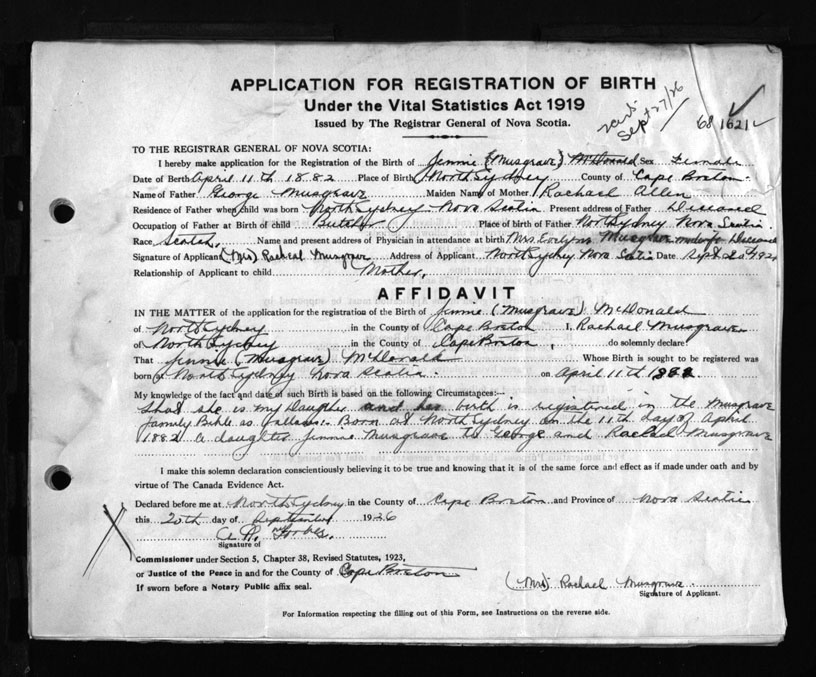 APPLICATION FOR REGISTRATION OF BIRTH
Under the Vital Statistics Act 1919
Issued by The Registrar General of Nova Scotia.
Sept 27/26
68 1621
TO THE REGISTRAR GENERAL OF NOVA SCOTIA:
I hereby make application for the Registration of the Birth of Jennie (Musgrave) McDonald Sex Female
Date of Birth April 11th 1882 Place of Birth North Sydney County of Cape Breton.
Name of Father George Musgrave Maiden Name of Mother Rachael Allen
Residence of Father when child was born North Sydney Nova Scotia Present address of Father Diseased
Occupation of Father at Birth of child Butcher Place of birth of Father North Sydney Nova Scotia.
Race Scotch. Name and present address of Physician in attendance at birth Mrs. Evelyn Musgrave midwife Diseased
Signature of Applicant (Mrs) Racheal Musgrave Address of Applicant North Sydney Nova Scotia Date Sept 20th 1926
Relationship of Applicant to child Mother.
AFFIDAVIT
IN THE MATTER of the application for the registration of the Birth of Jennie (Musgrave) McDonald
of North Sydney in the County of Cape Breton I, Rachael Musgrave
of North Sydney in the County of Cape Breton, do solemnly declare:
That Jennie (Musgrave) McDonald Whose Birth is sought to be registered was
born North Sydney Nova Scotia. on April 11th 1882
My knowledge of the fact and date of such Birth is based on the following Circumstances:—
that she is my Daughter and her birth is registered in the Musgrave
family Bible as follows:- Born at North Sydney on the 11th day of April
1882 a daughter Jennie Musgrave to George and Rachael Musgrave
I make this solemn declaration conscientiously believing it to be true and knowing that it is of the same force and effect as if made under oath and by
virtue of The Canada Evidence Act.
Declared before me at North Sydney in the County of Cape Breton and Province of Nova Scotia
this 20th day of September 1926
A. R. Forbes.
Signature of
Commissioner under Section 5, Chapter 38, Revised Statutes, 1923,
or Justice of the Peace in and for the County of Cape Breton
If sworn before a Notary Public affix seal.
(Mrs) Rachael Musgrave
Signature of Applicant.
For Information respecting the filling out of this Form, see Instructions on the reverse side.